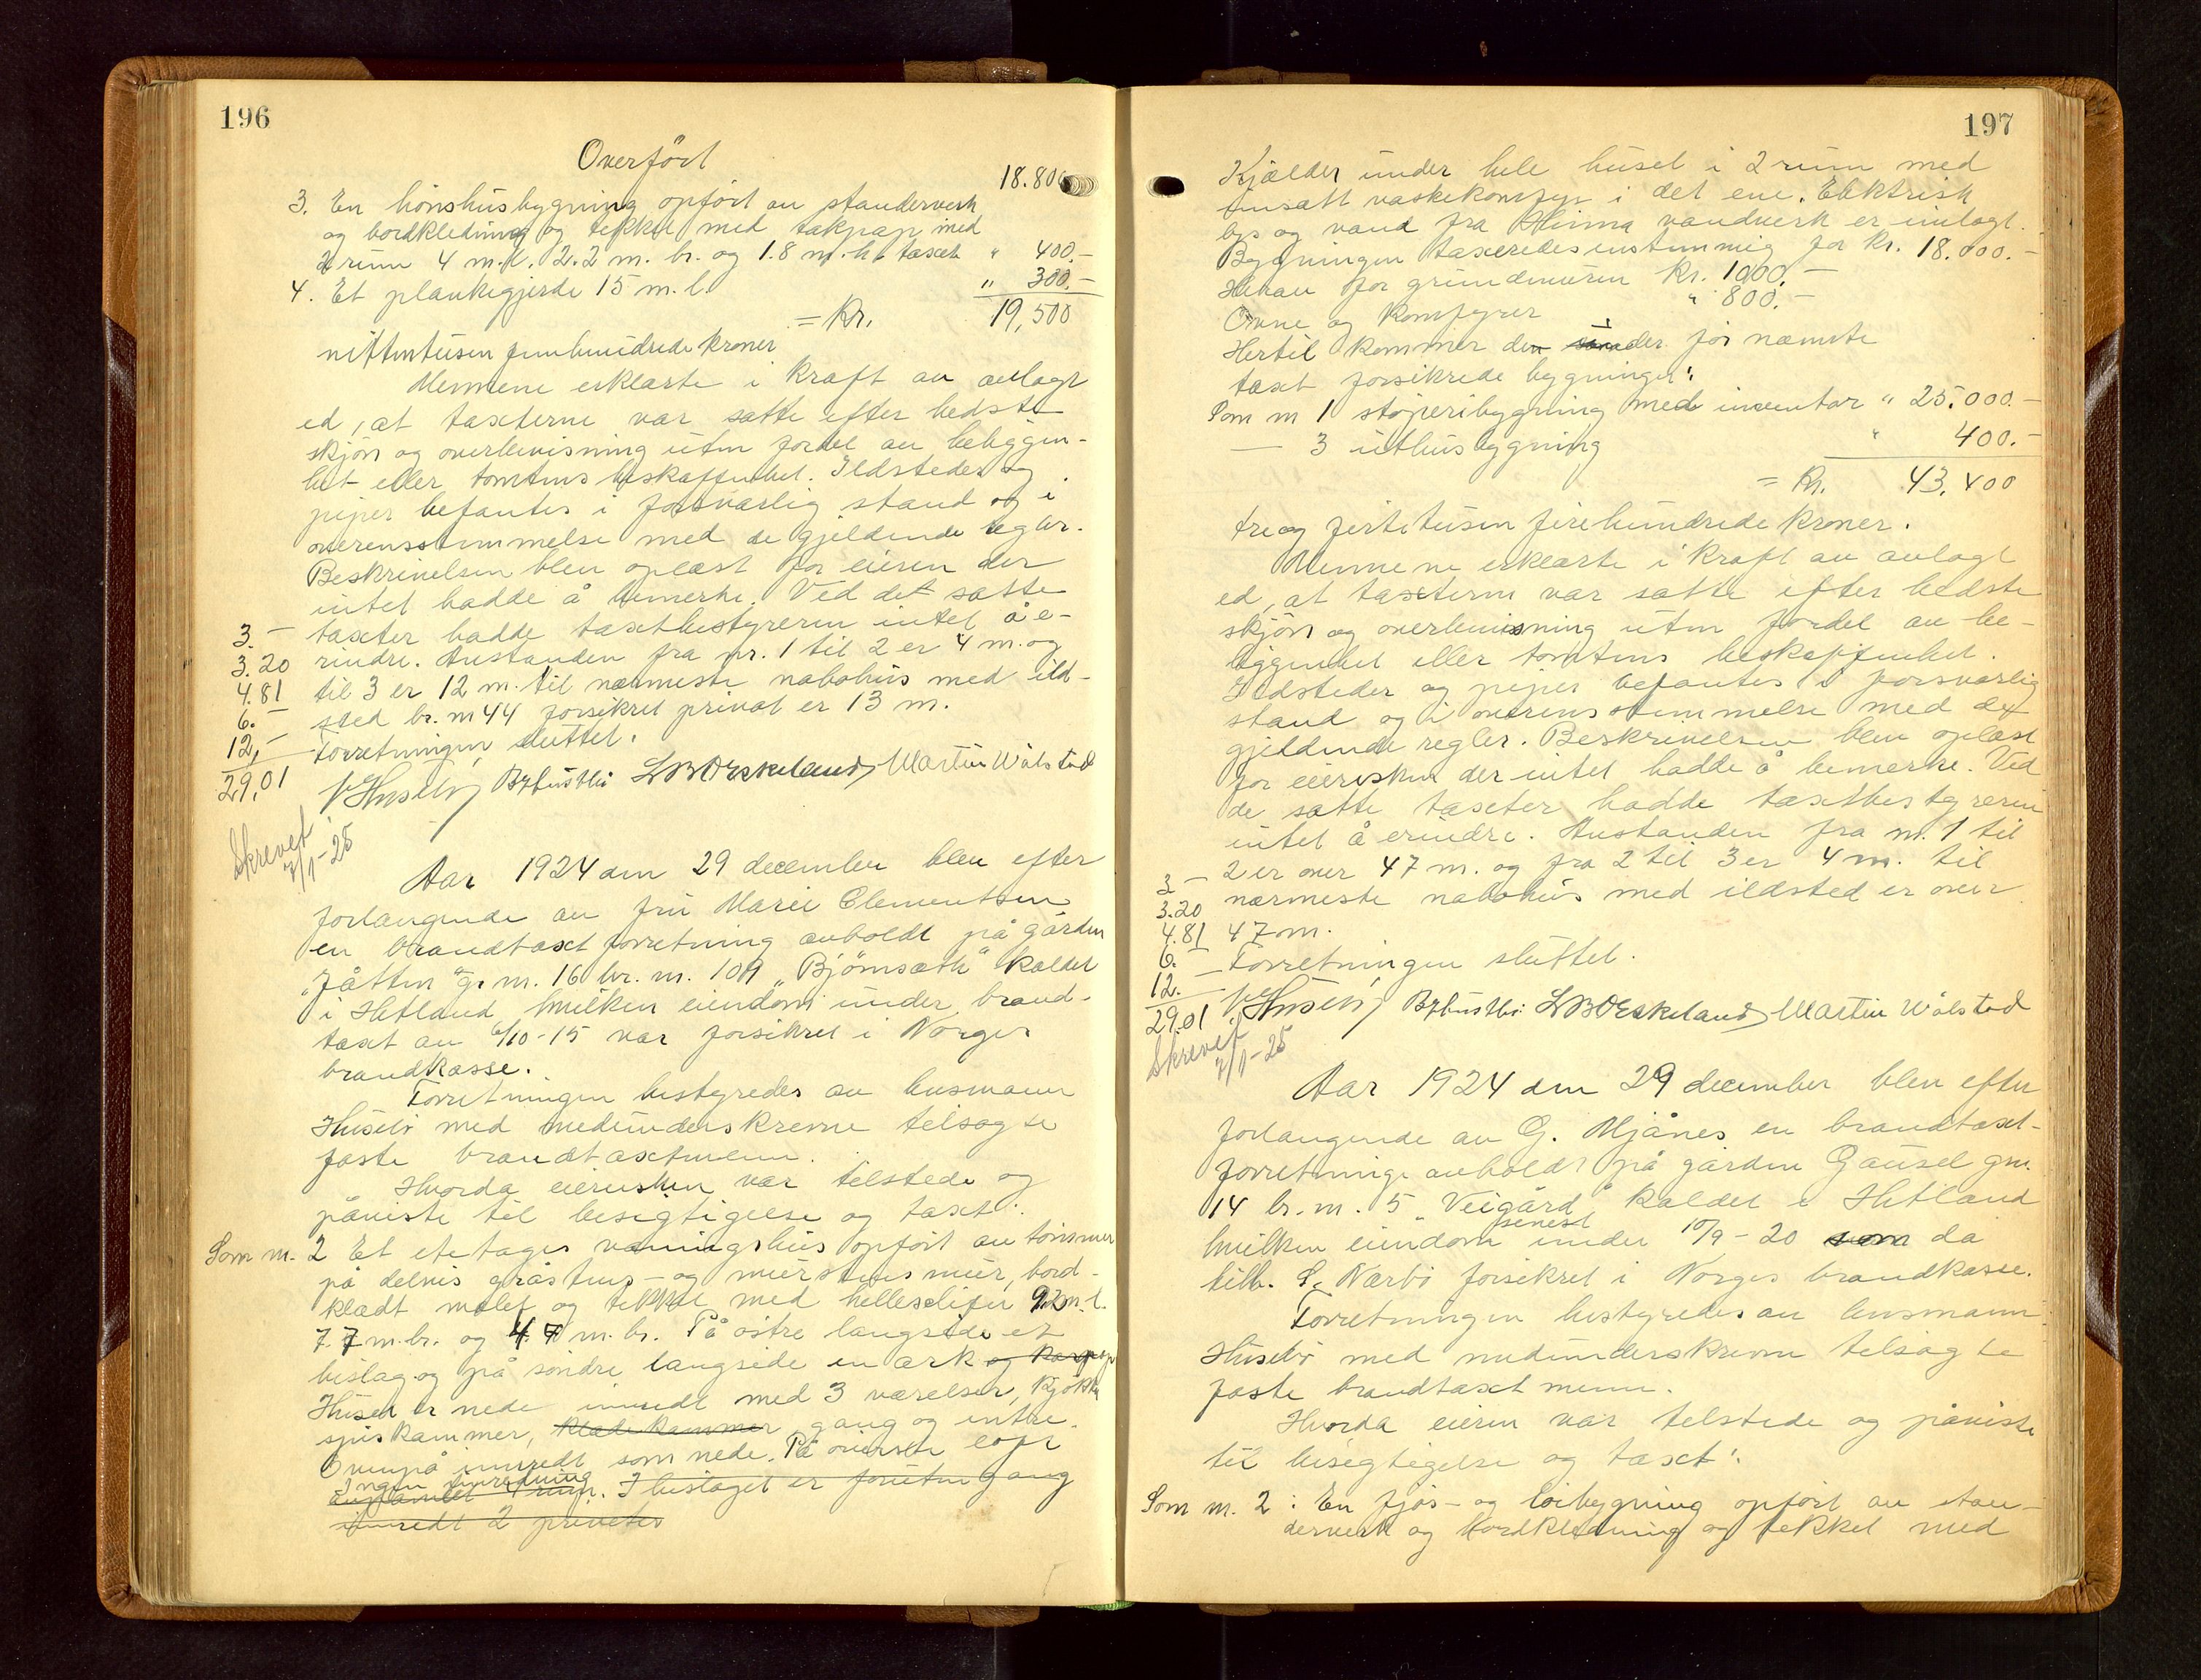 196
Overført
18.80
3. En hönshusbygning opfört av standerverk
og bordkledning og tekket med takpap med
2 rum 4 m.l. 2.2 m. br. og 1.8 m. h. taxt " 400.-
4. Et plankegjerde 15 m. l. " 300.-
= Kr. 19,500
nittentusen femhundrede kroner
Mennene erklærte i kraft av avlagt
ed, at taxterne var satte efter bedste
skjön og overbevisning uten fordel av beliggen-
het eller tomtens beskaffenhet. Ildsteder og
piper befantes i forsvarlig stand og i
overensstemmelse med de gjeldende regler.
Beskrivelsen blev oplæst for eieren der
intet hadde å bemerke. Ved det satte
3.- taxter hadde taxtbestyreren intet å e-
3.20 rindre. Avstanden fra nr. 1 til 2 er 4 m. og
4.81 til 3 er 12 m. til nærmeste nabohus med ild-
6.- sted br. nr 44 forsikret privat er 13 m.
12,- Forretningen sluttet.
29,01 Husebö LBOeskeland Martin Wålstad
Skrevet
7/1-25
Aar 1924 den 29 december blev efter
forlangende av fru Marie Clementsen
en brandtaxtforretning avholdt på gården
"Jåtten" g. nr. 16 br. nr. 109 "Björnsæth" kaldet
i Hetland hvilken eiendom under brand-
taxt av 6/10-15 var forsikret i Norges
brandkasse.
Forretningen bestyredes av lensmann
Husebö med medunderskrevne telsagte
faste brandtaxtmenn.
Hvorda eiersken var tilstede og
påviste til besigtigelse og taxt:
Som nr. 2 Et etetages våningshus opfört av tömmer
på delvis gråstens- og murstens mur, bord-
klædt malet og tekket med helleskifer 9.2 m. l.
7.7 m. br. og 4.7 m. h. På östre langside et
bislag og på söndre langside en ark og
Huset er nede innredt med 3 værelser, kjökken
spiskammer, klædekammer gang og entre.
Ovenpå innredt som nede. På överste loft
Ingen innredning
I bislaget er foruten gang
innredt 2 priveter
197
Kjælder under hele huset i 2 rum med
innsatt vaskekomfyr i det ene. Elektrisk
lys og vand fra vandverk er innlagt.
Bygningen taxeredes enstemmig for kr. 18.000.-
Herav for grundmuren kr. 1000.-
Ovne og komfyrer " 800.-
Hertil kommer de der för nævnte
taxt forsikrede bygninger:
Som nr 1 stöperibygning med inventar " 25.000.-
— 3 uthusbygning " 400.-
= Kr. 43.400
treog firtitusen firehundrede kroner.
Mennene erklærte i kraft av avlagt
ed, at taxterne var satte efter bedste
skjön og overbevisning uten fordel av be-
liggenhet eller tomtens beskaffenhet.
Ildsteder og piper befantes i forsvarlig
stand og i overensstemmelse med de
gjeldende regler. Beskrivelsen blev oplæst
for eiersken der intet hadde å bemerke. Ved
de satte taxter hadde taxtbestyreren
intet å erindre. Avstanden fra nr. 1 til
2 er over 47 m. og fra 2 til 3 er 4 m. til
3 - nærmeste nabohus med ildsted er over
3.20
4.81 47 m.
6.- Forretningen sluttet.
12.-
29.01 Husebö LBOeskeland Martin Wålstad
Skrevet
7/1-25
Aar 1924 den 29 december blev efter
forlangende av G. Mjånes en brandtaxt-
forretning avholdt på gården Gausel gnr.
14 br. nr. 5 "Veigård" kaldet i Hetland
hvilken eiendom senest under 10/9-20 som da
tilh. S. Nærbö forsikret i Norges brandkasse.
Forretningen bestyredes av lensmann
Husebö med medunderskrevne telsagte
faste brandtaxtmenn.
Hvorda eieren var telstede og påviste
til besigtigelse og taxt:
Som nr. 2: En fjös- og löebygning opfört av stan-
derverk og bordkledning og tekket med